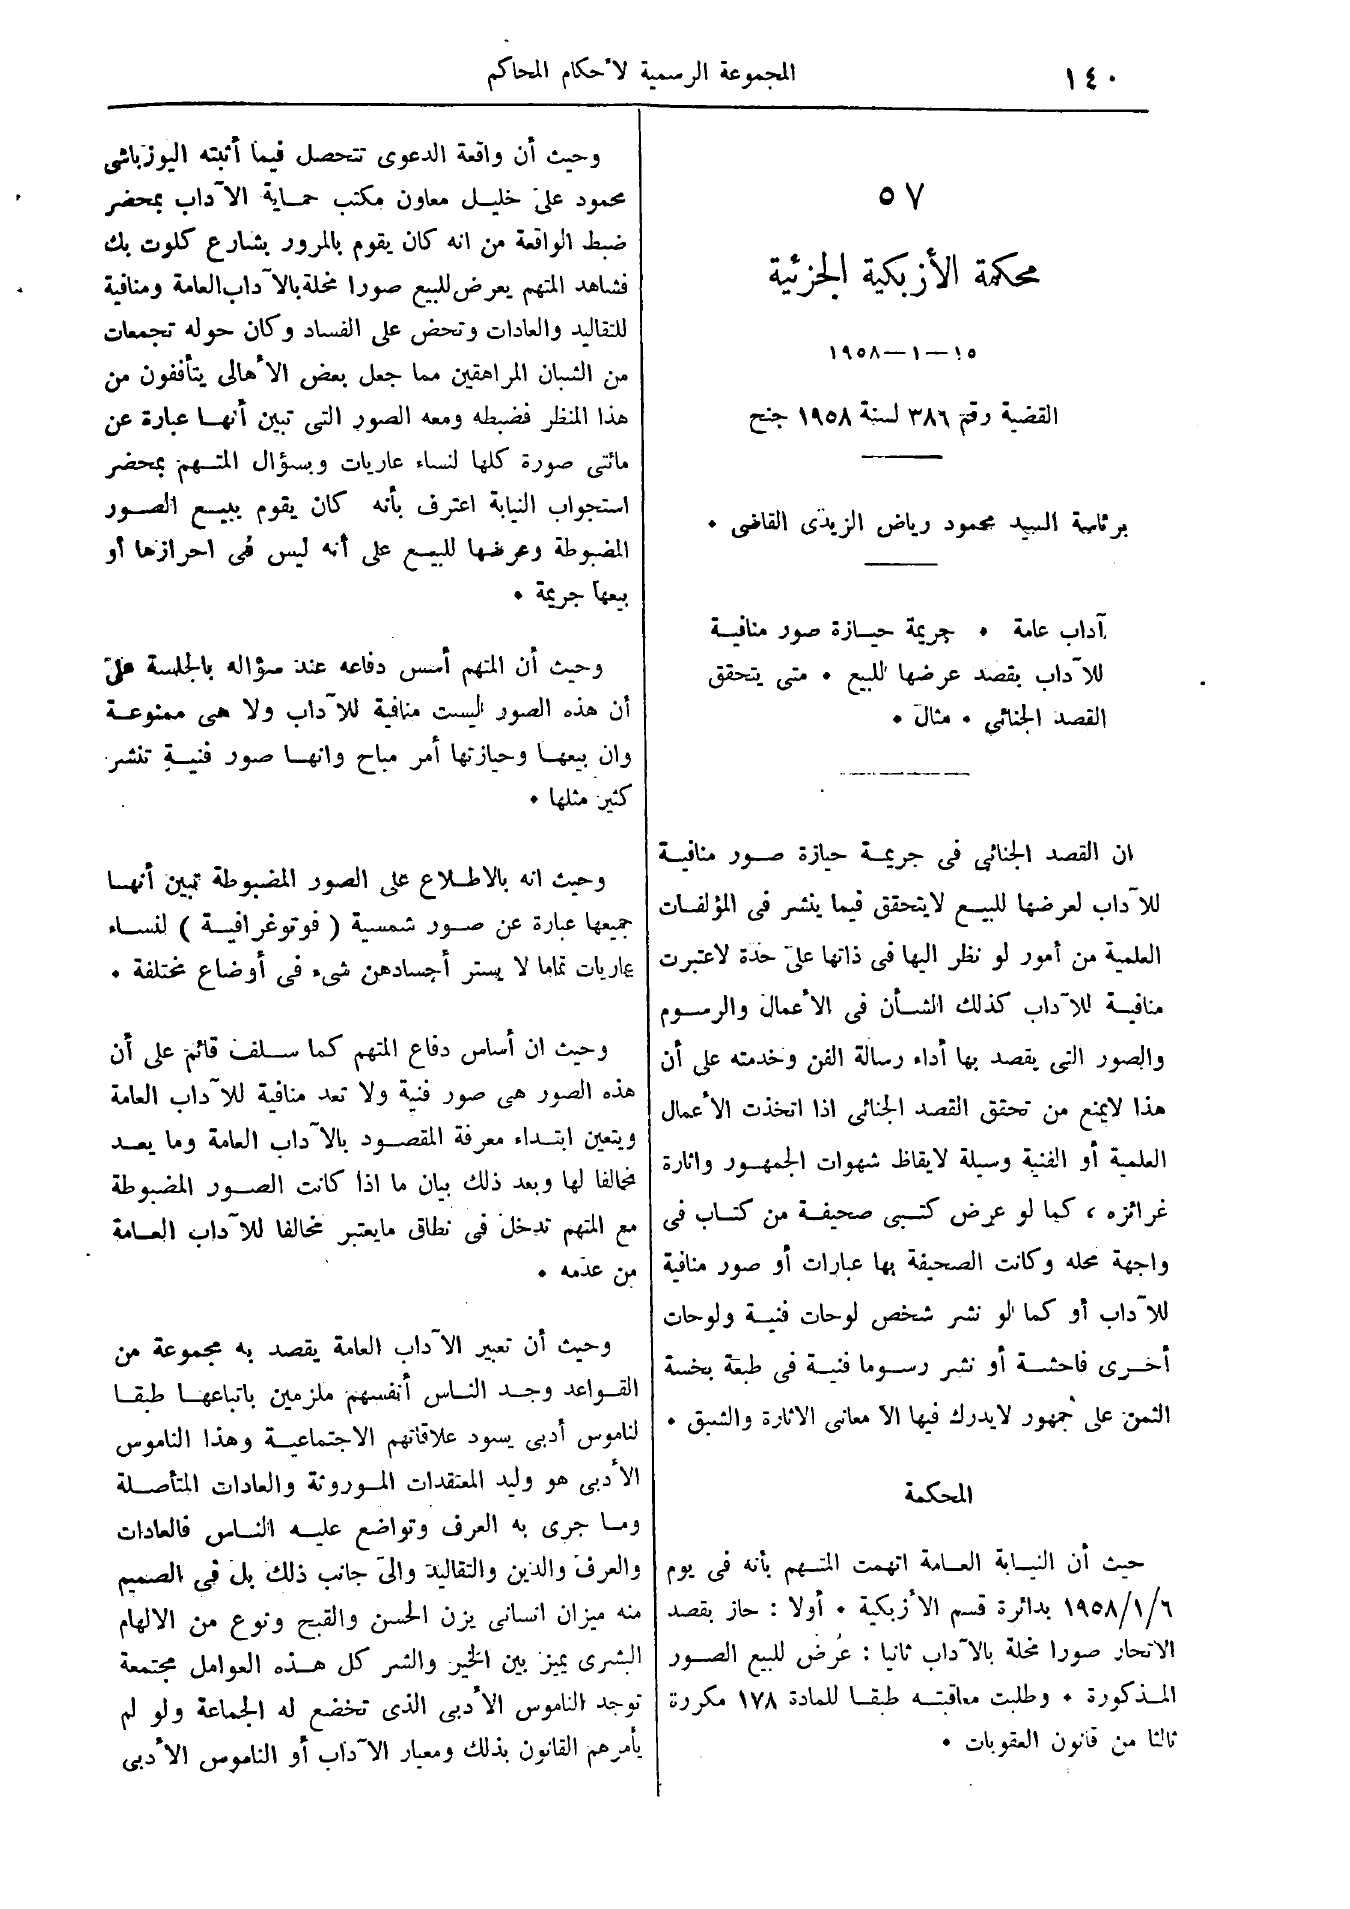 ١٤٠
المجموعة الرسمية لأحكام المحاكم
٥٧
محكمة الأزبكية الجزئية
١٥—١—١٩٥٨
القضية رقم ٣٨٦ لسنة ١٩٥٨ جنح
برئاسة السيد محمود رياض الزيدى القاضى .
آداب عامة . جريمة حيازة صور منافية
للآداب بقصد عرضها للبيع . متى يتحقق
القصد الجنائي . مثال .
ان القصد الجنائي فى جريمة حيازة صور منافية
للآداب لعرضها للبيع لايتحقق فيما ينشر فى المؤلفات
العلمية من أمور لو نظر اليها فى ذاتها على حدة لاعتبرت
منافية للآداب كذلك الشأن فى الأعمال والرسوم
والصور التى يقصد بها أداء رسالة الفن وخدمته على أن
هذا لايمنع من تحقق القصد الجنائى اذا اتخذت الأعمال
العلمية أو الفنية وسيلة لايقاظ شهوات الجمهور واثارة
غرائزه ، كما لو عرض كتبى صحيفة من كتاب فى
واجهة محله وكانت الصحيفة بها عبارات أو صور منافية
للآداب أو كما لو نشر شخص لوحات فنية ولوحات
أخرى فاحشة أو نشر رسوما فنية فى طبعة بخسة
الثمن على جمهور لايدرك فيها الا معانى الاثارة والشبق .
المحكمة
حيث أن النيابة العامة اتهمت المتهم بأنه فى يوم
١٩٥٨/١/٦ بدائرة قسم الأزبكية . أولا : حاز بقصد
الاتجار صورا مخلة بالآداب ثانيا : عرض للبيع الصور
المذكورة . وطلبت معاقبته طبقا للمادة ١٧٨ مكررة
ثالثا من قانون العقوبات .
وحيث أن واقعة الدعوى تتحصل فيما أثبته اليوزباشى
محمود على خليل معاون مكتب حماية الآداب بمحضر
ضبط الواقعة من انه كان يقوم بالمرور بشارع كلوت بك
فشاهد المتهم يعرض للبيع صورا مخلة بالآداب العامة ومنافية
للتقاليد والعادات وتحض على الفساد وكان حوله تجمعات
من الشبان المراهقين مما جعل بعض الأهالى يتأففون من
هذا المنظر فضبطه ومعه الصور التى تبين أنها عبارة عن
مائتى صورة كلها لنساء عاريات وبسؤال المتهم بمحضر
استجواب النيابة اعترف بأنه كان يقوم ببيع الصور
المضبوطة وعرضها للبيع على أنه ليس فى احرازها أو
بيعها جريمة .
وحيث أن المتهم أسس دفاعه عند سؤاله بالجلسة على
أن هذه الصور ليست منافية للآداب ولا هى ممنوعة
وان بيعها وحيازتها أمر مباح وانها صور فنية تنشر
كثير مثلها .
وحيث انه بالاطلاع على الصور المضبوطة تبين أنها
جميعها عبارة عن صور شمسية ( فوتوغرافية ) لنساء
عاريات تماما لا يستر أجسادهن شىء فى أوضاع مختلفة .
وحيث ان أساس دفاع المتهم كما سلف قائم على أن
هذه الصور هى صور فنية ولا تعد منافية للآداب العامة
ويتعين ابتداء معرفة المقصود بالآداب العامة وما يعد
مخالفا لها وبعد ذلك بيان ما اذا كانت الصور المضبوطة
مع المتهم تدخل فى نطاق مايعتبر مخالفا للآداب العامة
من عدمه .
وحيث أن تعبير الآداب العامة يقصد به مجموعة من
القواعد وجد الناس أنفسهم ملزمين باتباعها طبقا
لناموس أدبى يسود علاقاتهم الاجتماعية وهذا الناموس
الأدبى هو وليد المعتقدات الموروثة والعادات المتأصلة
وما جرى به العرف وتواضع عليه الناس فالعادات
والعرف والدين والتقاليد والى جانب ذلك بل فى الصميم
منه ميزان انسانى يزن الحسن والقبح ونوع من الالهام
البشرى يميز بين الخير والشر كل هذه العوامل مجتمعة
توجد الناموس الأدبى الذى تخضع له الجماعة ولو لم
يأمرهم القانون بذلك ومعيار الآداب أو الناموس الأدبى